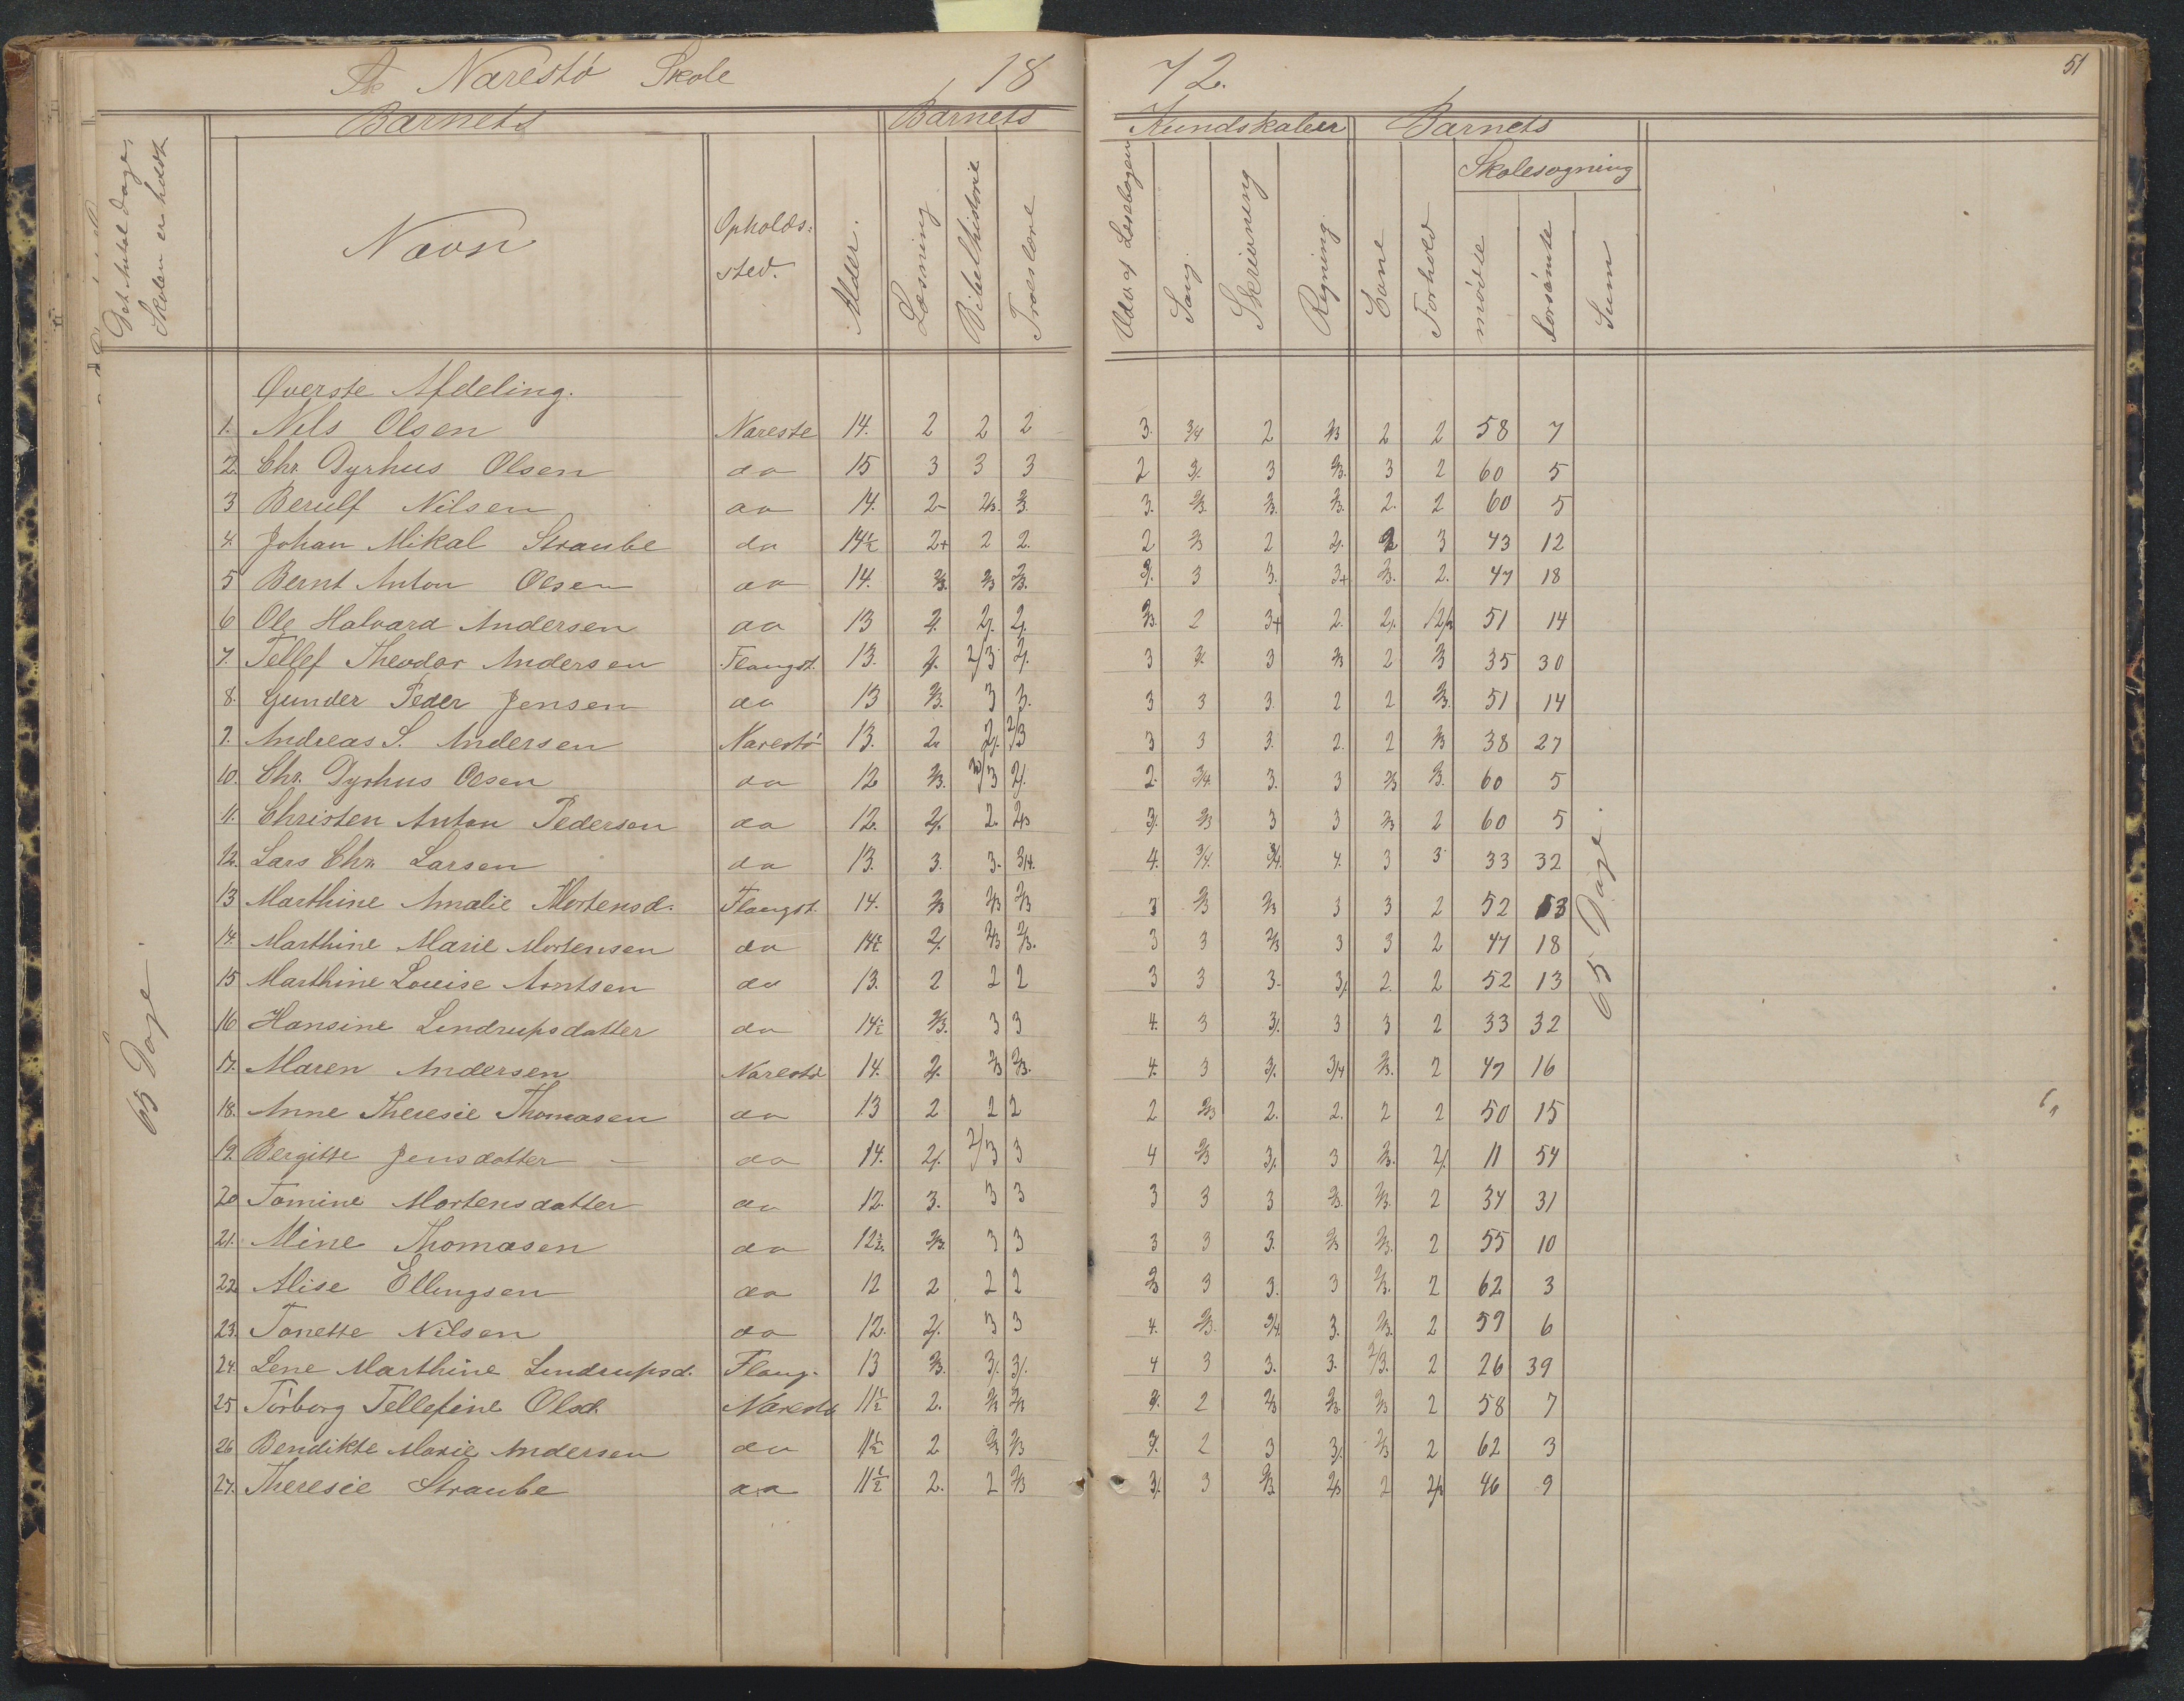 Narestö Skole 18 72.
51
Barnets Barnets Kundskaber Barnets
Det Antal Dage,
Skolen er holdt
Navn
Opholds-
sted.
Alder.
Læsning
Bibelhistorie
Troeslære
Udv. af Læsebogen
Sang.
Skrivning
Regning
Evne
Forhold
Skolesøgning
mødte
forsømte
Sum
65 Dage.
65 Dage.
Øverste Afdeling.
1. Nils Olsen Nareste 14. 2 2 2 3. 3/4 2 2/3 2 2 58 7
2. Chr. Dyrhus Olsen do 15 3 3 3 2 3/. 3 2/3. 3 2 60 5
3 Berulf Nilsen do 14. 2- 2/3. 2/3. 3. 2/3. 2/3. 2/3. 2. 2 60 5
4. Johan Mikal Straube do 14½ 2+ 2 2. 2 2/3 2 2/. 2 3 43 12
5 Bernt Anton Olsen do 14. 2/3. 2/3 2/3. 3/. 3 3. 3+ 2/3. 2. 47 18
6 Ole Halvard Andersen do 13 2/. 2/. 2/. 2/3. 2 3+ 2. 2/. 51 14
7. Tellef Theodor Andersen Flangst. 13. 2/. 2/3 2/. 3 3/. 3 2/3 2 2/3 35 30
8. Gunder Peder Jensen do 13 2/3. 3 3. 3 3 3. 2 2 2/3. 51 14
9. Andreas S. Andersen Narestö 13. 2. 2/. 2/3 3 3 3. 2. 2 2/3 38 27
10. Chr. Dyrhus Olsen do 12 2/3. 2/3 2/. 2. 3/4. 3. 3 2/3 2/3. 60 5
11. Christen Anton Pedersen do 12. 2/. 2. 2/3 3/. 2/3 3 3 2/3 2 60 5
12. Lars Chr. Larsen do 13. 3. 3. 3/4. 4. 3/4. 3/4. 4. 3 3 33 32
13 Marthine Amalie Mortensd. Flangst. 14. 2/3 2/3 2/3 3 2/3 2/3 3 3 2 52 13
14. Marthine Marie Mortensen do 14½ 2/. 2/3 2/3. 3 3 2/3 3 3 2 47 18
15 Marthine Louise Arntsen do 13. 2 2 2 3 3 3- 3/. 2. 2 52 13
16 Hansine Lindrupsdatter do 14½ 2/3. 3 3 4. 3 3/. 3 3 2 33 32
17. Maren Andersen Narestö 14. 2/. 2/3 2/3. 4. 3 3/. 3/4 2/3. 2 47 16
18. Anne Theresie Thomasen do 13 2 2 2 2 2/3 2. 2. 2 2 50 15
19. Bergitte Jensdatter do 14. 2/. 2/3 3 4 2/3 3/. 3 2/3. 2/. 11 54
20 Tomine Mortensdatter do 12. 3. 3 3 3 3 3 2/3. 2/3. 2 34 31
21. Mine Thomasen do 12½ 2/3. 3 3 3 3 3. 2/3 2/3. 2 55 10
22 Alise Ellingsen do 12 2 2 2 2/3 3 3. 3 2/3. 2 62 3
23. Tonette Nilsen do 12. 2/. 3 3 4. 2/3. 3/4. 3. 2/3. 2 59 6
24. Lene Marthine Lindrupsd. Flang. 13 2/3. 3/. 3/. 4 3 3. 3. 2/3. 2 26 39
25 Törborg Tellefine Olsd. Narestö 11½ 2. 2/3 2/3 3/. 2 2/3 2/3. 2/3 2 58 7
26 Bendikte Marie Andersen do 11½ 2 2/3 2/3 3/. 2 3 3/. 2/3 2 62 3
27. Theresie Straube do 11½ 2. 2 2/3 3/. 3 2/3 2/3 2 46 9